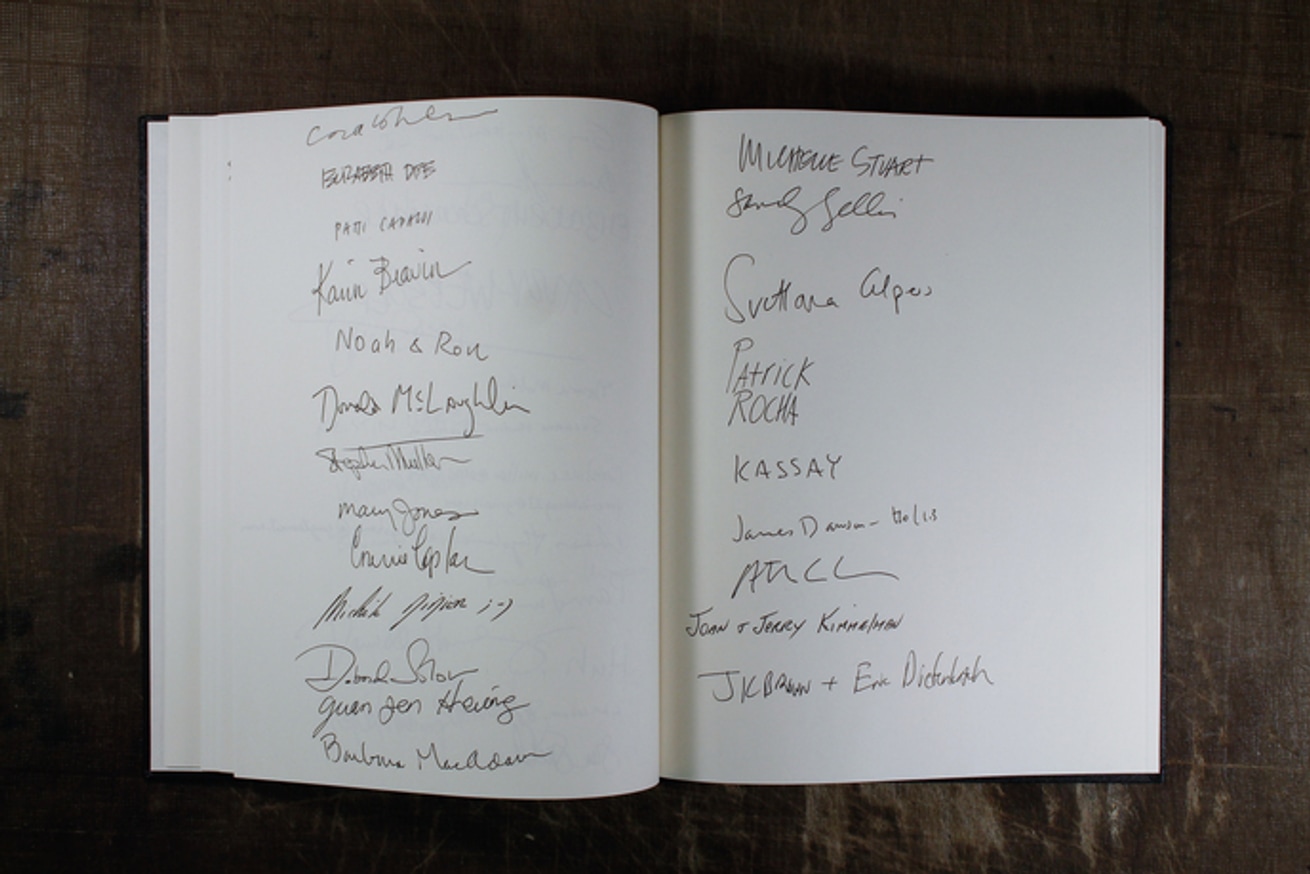 Cora Cohen
ELIZABETH DEE
PATTI
Karin Bravin
Noah & Ron
Donald McLaughlin
Stephen Mueller
Mary Jones
Connie Caplan
;-)
Deborah
Guan Jen Hsiang
Barbara MacAdam
MICHELLE STUART
Sandy Gellis
Svetlana Alpers
PATRICK
ROCHA
KASSAY
James Dawson-Hollis
JOAN + JERRY KIMMELMAN
JK BROWN + Eric Diefenbach